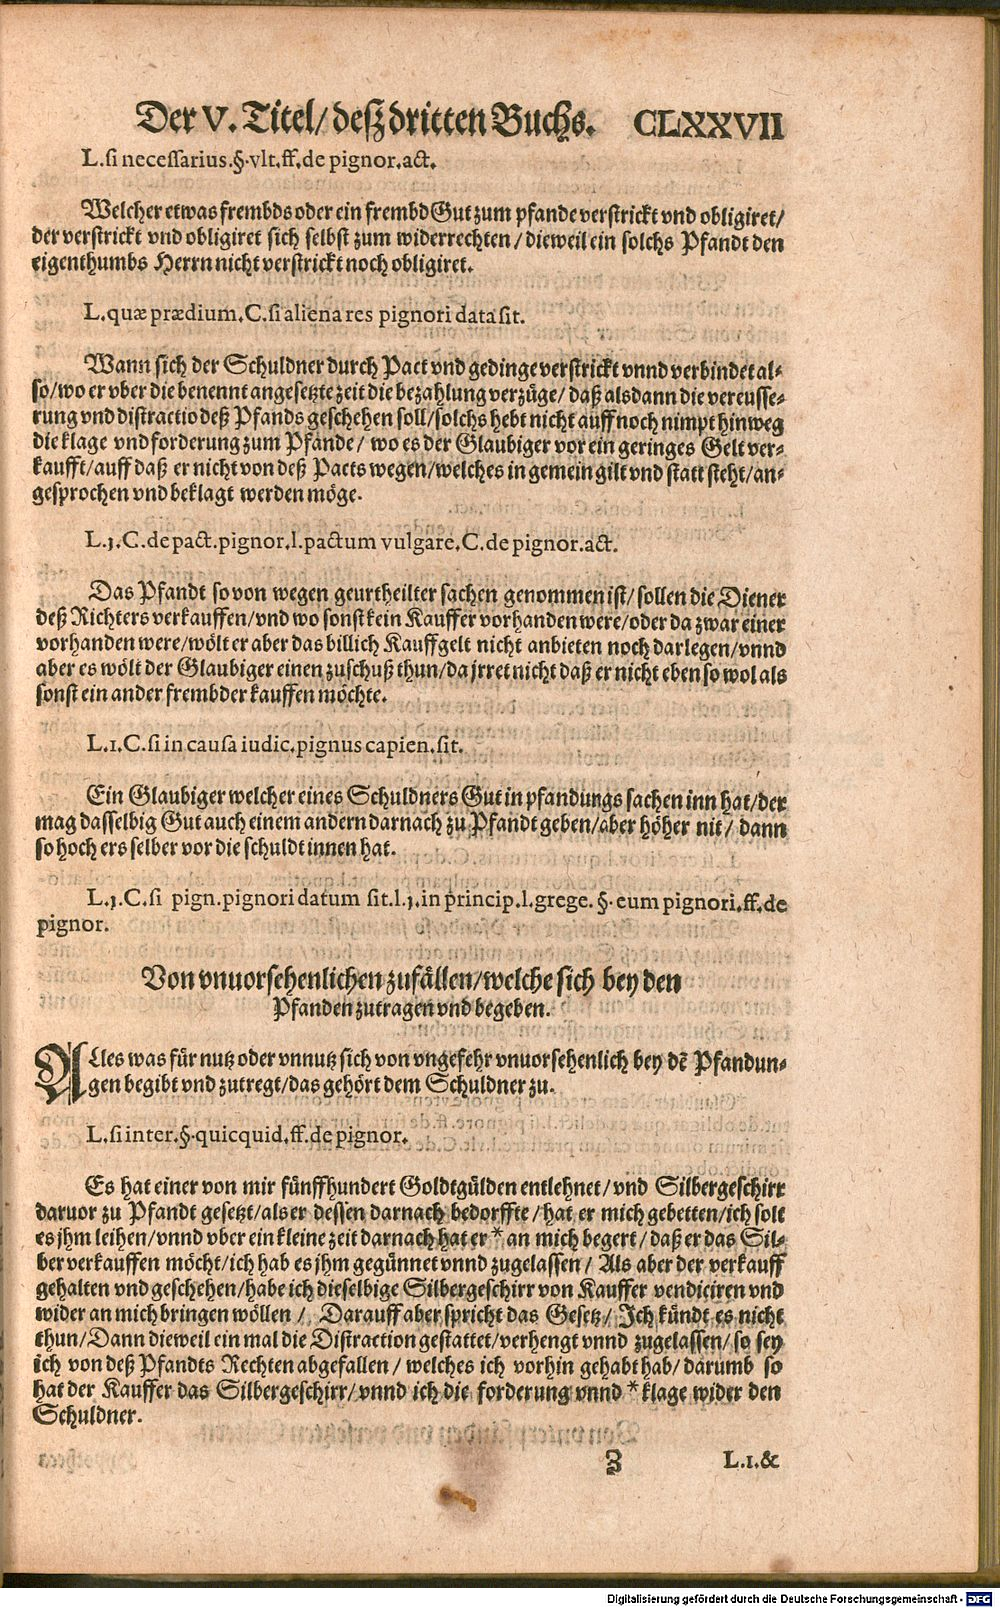 Der V. Titel/ deß dritten Buchs. CLXXVII
L. si necessarius. §. vlt. ff. de pignor. act.
Welcher etwas frembds oder ein frembd Gut zum pfande verstrickt vnd obligiret/
der verstrickt vnd obligiret sich selbst zum widerrechten / dieweil ein solchs Pfandt den
eigenthumbs Herrn nicht verstrickt noch obligiret.
L. quæ prædium. C. si aliena res pignori data sit.
Wann sich der Schuldner durch Pact vnd gedinge verstrickt vnnd verbindet al-
so/ wo er vber die benennt angesetzte zeit die bezahlung verzüge/ daß alsdann die vereusse-
rung vnd distractio deß Pfands geschehen soll/ solchs hebt nicht auff noch nimpt hinweg
die klage vnd forderung zum Pfande/ wo es der Glaubiger vor ein geringes Gelt ver-
kaufft/ auff daß er nicht von deß Pacts wegen/ welches in gemein gilt vnd statt steht/ an-
gesprochen vnd beklagt werden möge.
L. j. C. de pact. pignor. l. pactum vulgare. C. de pignor. act.
Das Pfandt so von wegen geurtheilter sachen genommen ist/ sollen die Diener
deß Richters verkauffen/ vnd wo sonst kein Kauffer vorhanden were/ oder da zwar einer
vorhanden were/ wölt er aber das billich Kauffgelt nicht anbieten noch darlegen/ vnnd
aber es wölt der Glaubiger einen zuschuß thun/ da jrret nicht daß er nicht eben so wol als
sonst ein ander frembder kauffen möchte.
L. 1. C. si in causa iudic. pignus capien. sit.
Ein Glaubiger welcher eines Schuldners Gut in pfandungs sachen inn hat/ der
mag dasselbig Gut auch einem andern darnach zu Pfandt geben/ aber höher nit / dann
so hoch ers selber vor die schuldt innen hat.
L. j. C. si pign. pignori datum sit. l. j. in princip. l. grege. §. eum pignori. ff. de
pignor.
Von vnuorsehenlichen zufällen/ welche sich bey den
Pfanden zutragen vnd begeben.
Alles was für nutz oder vnnutz sich von vngefehr vnuorsehenlich bey dē Pfandun-
gen begibt vnd zutregt/ das gehört dem Schuldner zu.
L. si inter. §. quicquid. ff. de pignor.
Es hat einer von mir fünffhundert Goldtgülden entlehnet/ vnd Silbergeschirr
daruor zu Pfandt gesetzt/ als er dessen darnach bedorffte / hat er mich gebetten/ ich solt
es jhm leihen/ vnnd vber ein kleine zeit darnach hat er * an mich begert / daß er das Sil-
ber verkauffen möcht/ ich hab es jhm gegünnet vnnd zugelassen / Als aber der verkauff
gehalten vnd geschehen/ habe ich dieselbige Silbergeschirr von Kauffer vendiciren vnd
wider an mich bringen wöllen / Darauff aber spricht das Gesetz/ Ich kündt es nicht
thun/ Dann dieweil ein mal die Distraction gestattet/ verhengt vnnd zugelassen/ so sey
ich von deß Pfandts Rechten abgefallen / welches ich vorhin gehabt hab/ darumb so
hat der Kauffer das Silbergeschirr/ vnnd ich die forderung vnnd * klage wider den
Schuldner.
Z L. 1. &
Digitalisierung gefördert durch die Deutsche Forschungsgemeinschaft - DFG